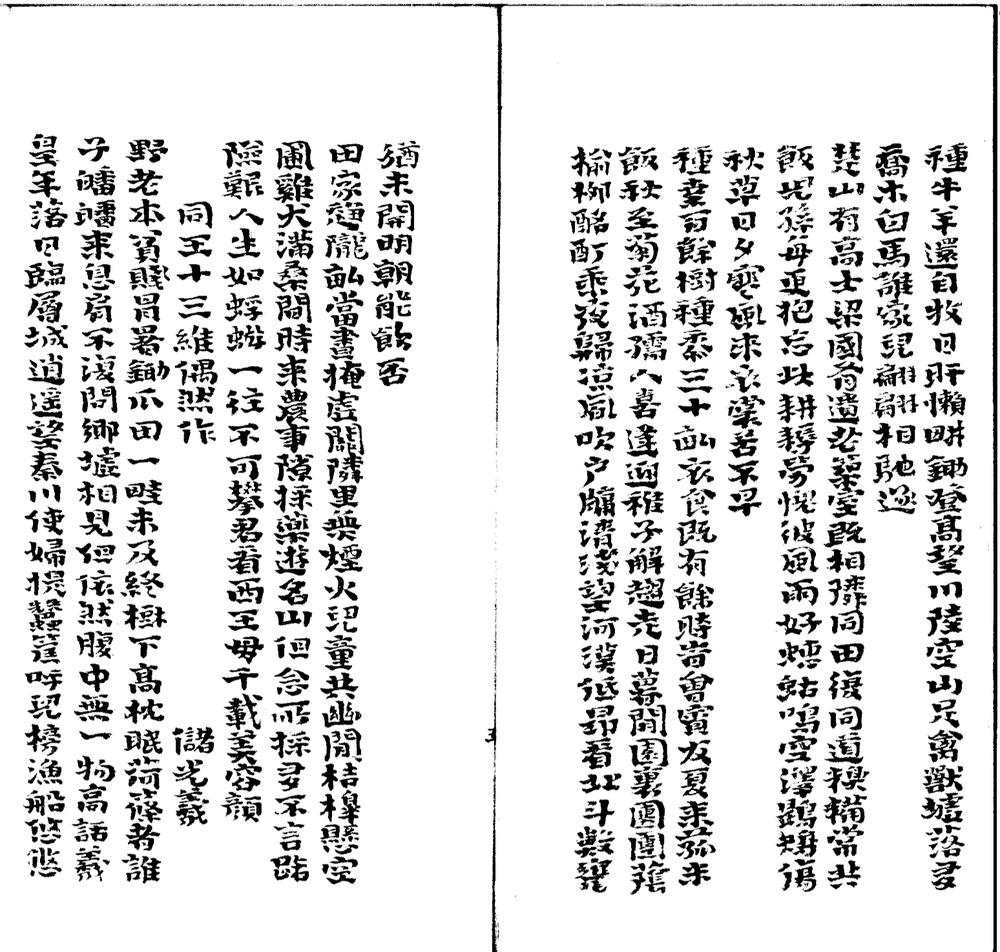 種牛羊還自牧日旰懶畊鋤登高望川陸空山足禽獸墟落多
喬木白馬誰家兒翩翩相馳逐
楚山有高士梁國有遺老築室既相隣同田復同道糗糒常共
飯兒孫每更抱忘此耕耨勞愧彼風雨好蟪蛄鳴空澤鶗鴂傷
秋草日夕寒風來衣裳苦不早
種桑百餘樹種黍三十畝衣食既有餘時時會賓友夏來菰米
飯秋至菊花酒孺人喜逢迎稚子解趨走日暮閒園裏團團蔭
榆柳酩酊乘夜歸凉風吹户牖清淺望河漢低昂看北斗數甕
猶未開明朝能飲否
田家趨隴畝當晝掩虛關隣里無煙火兒童共幽閒桔橰懸空
圃雞犬滿桑間時來農事隙採藥遊名山但念所採多不言路
險艱人生如蜉蝣一往不可攀君看西王母千載美容顏
同王十三維偶然作 儲光羲
野老本貧賤冒暑鋤瓜田一畦未及終樹下高枕眠荷蓧者誰
子皤皤來息肩不復問鄉墟相見但依然腹中無一物高話羲
皇年落日臨層城逍遙望秦川使婦提蠶筐呼兒榜漁船悠悠